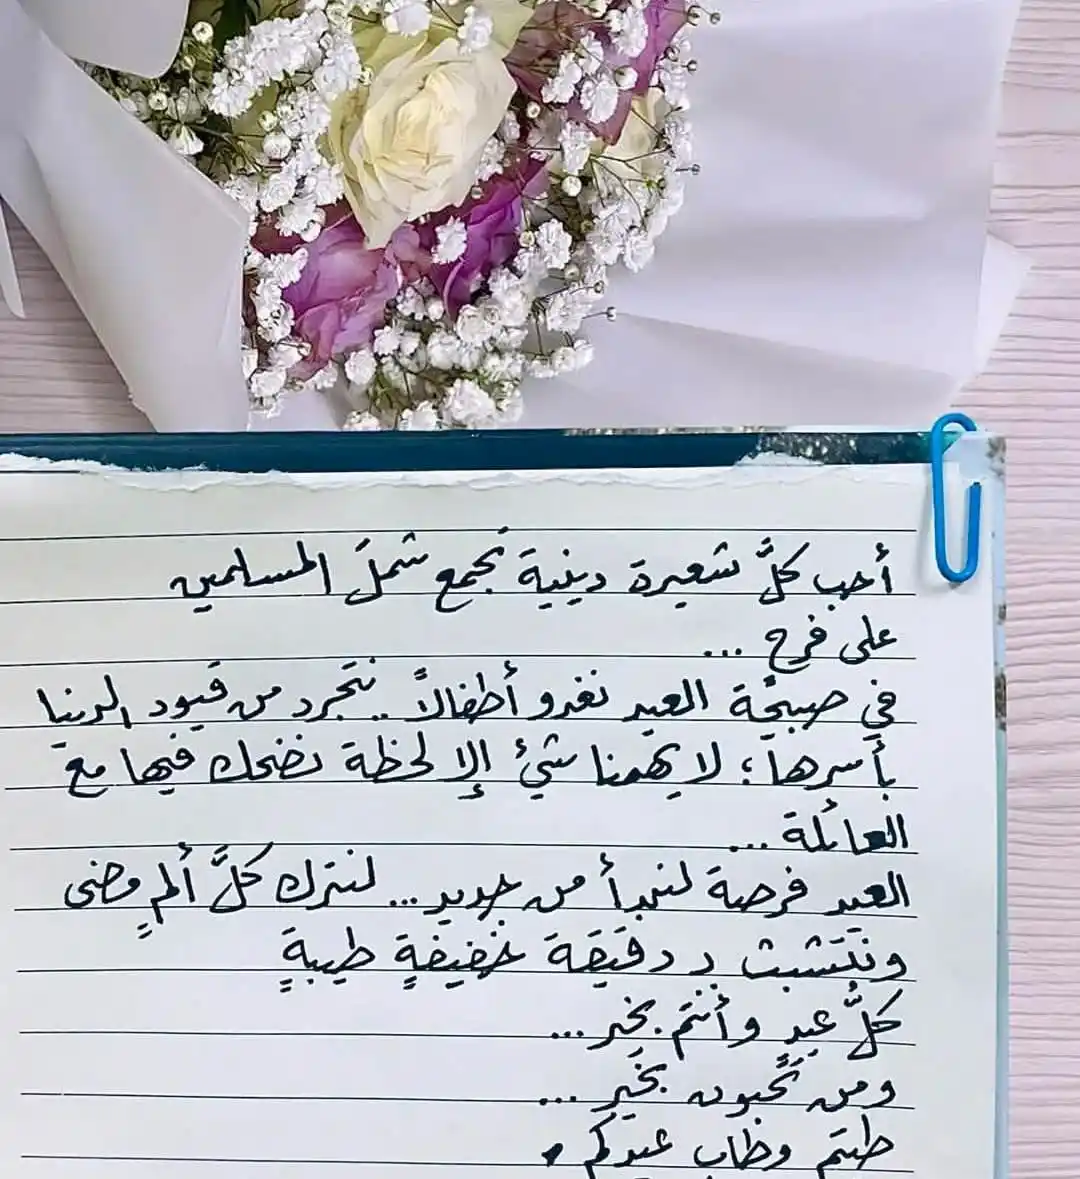 أحب كلَّ شعيرة دينية تجمع شملَ المسلمين
على فرح ...
في صبيحَة العيد نغدو أطفالاً .. نتجرد من قيود الدنيا
بأسرها؛ لا يهمنا شيءُ إلا لحظة نضحك فيها مع
العائلة ...
العيد فرصة لنبدأ من جديد ... لنترك كلَّ ألمٍ مضى
ونتشبث بـ دقيقة خفيفةٍ طيبةٍ
كلُّ عيد وأنتم بخير ...
ومن تحبون بخير ...
طبتم وطاب عيدكم .